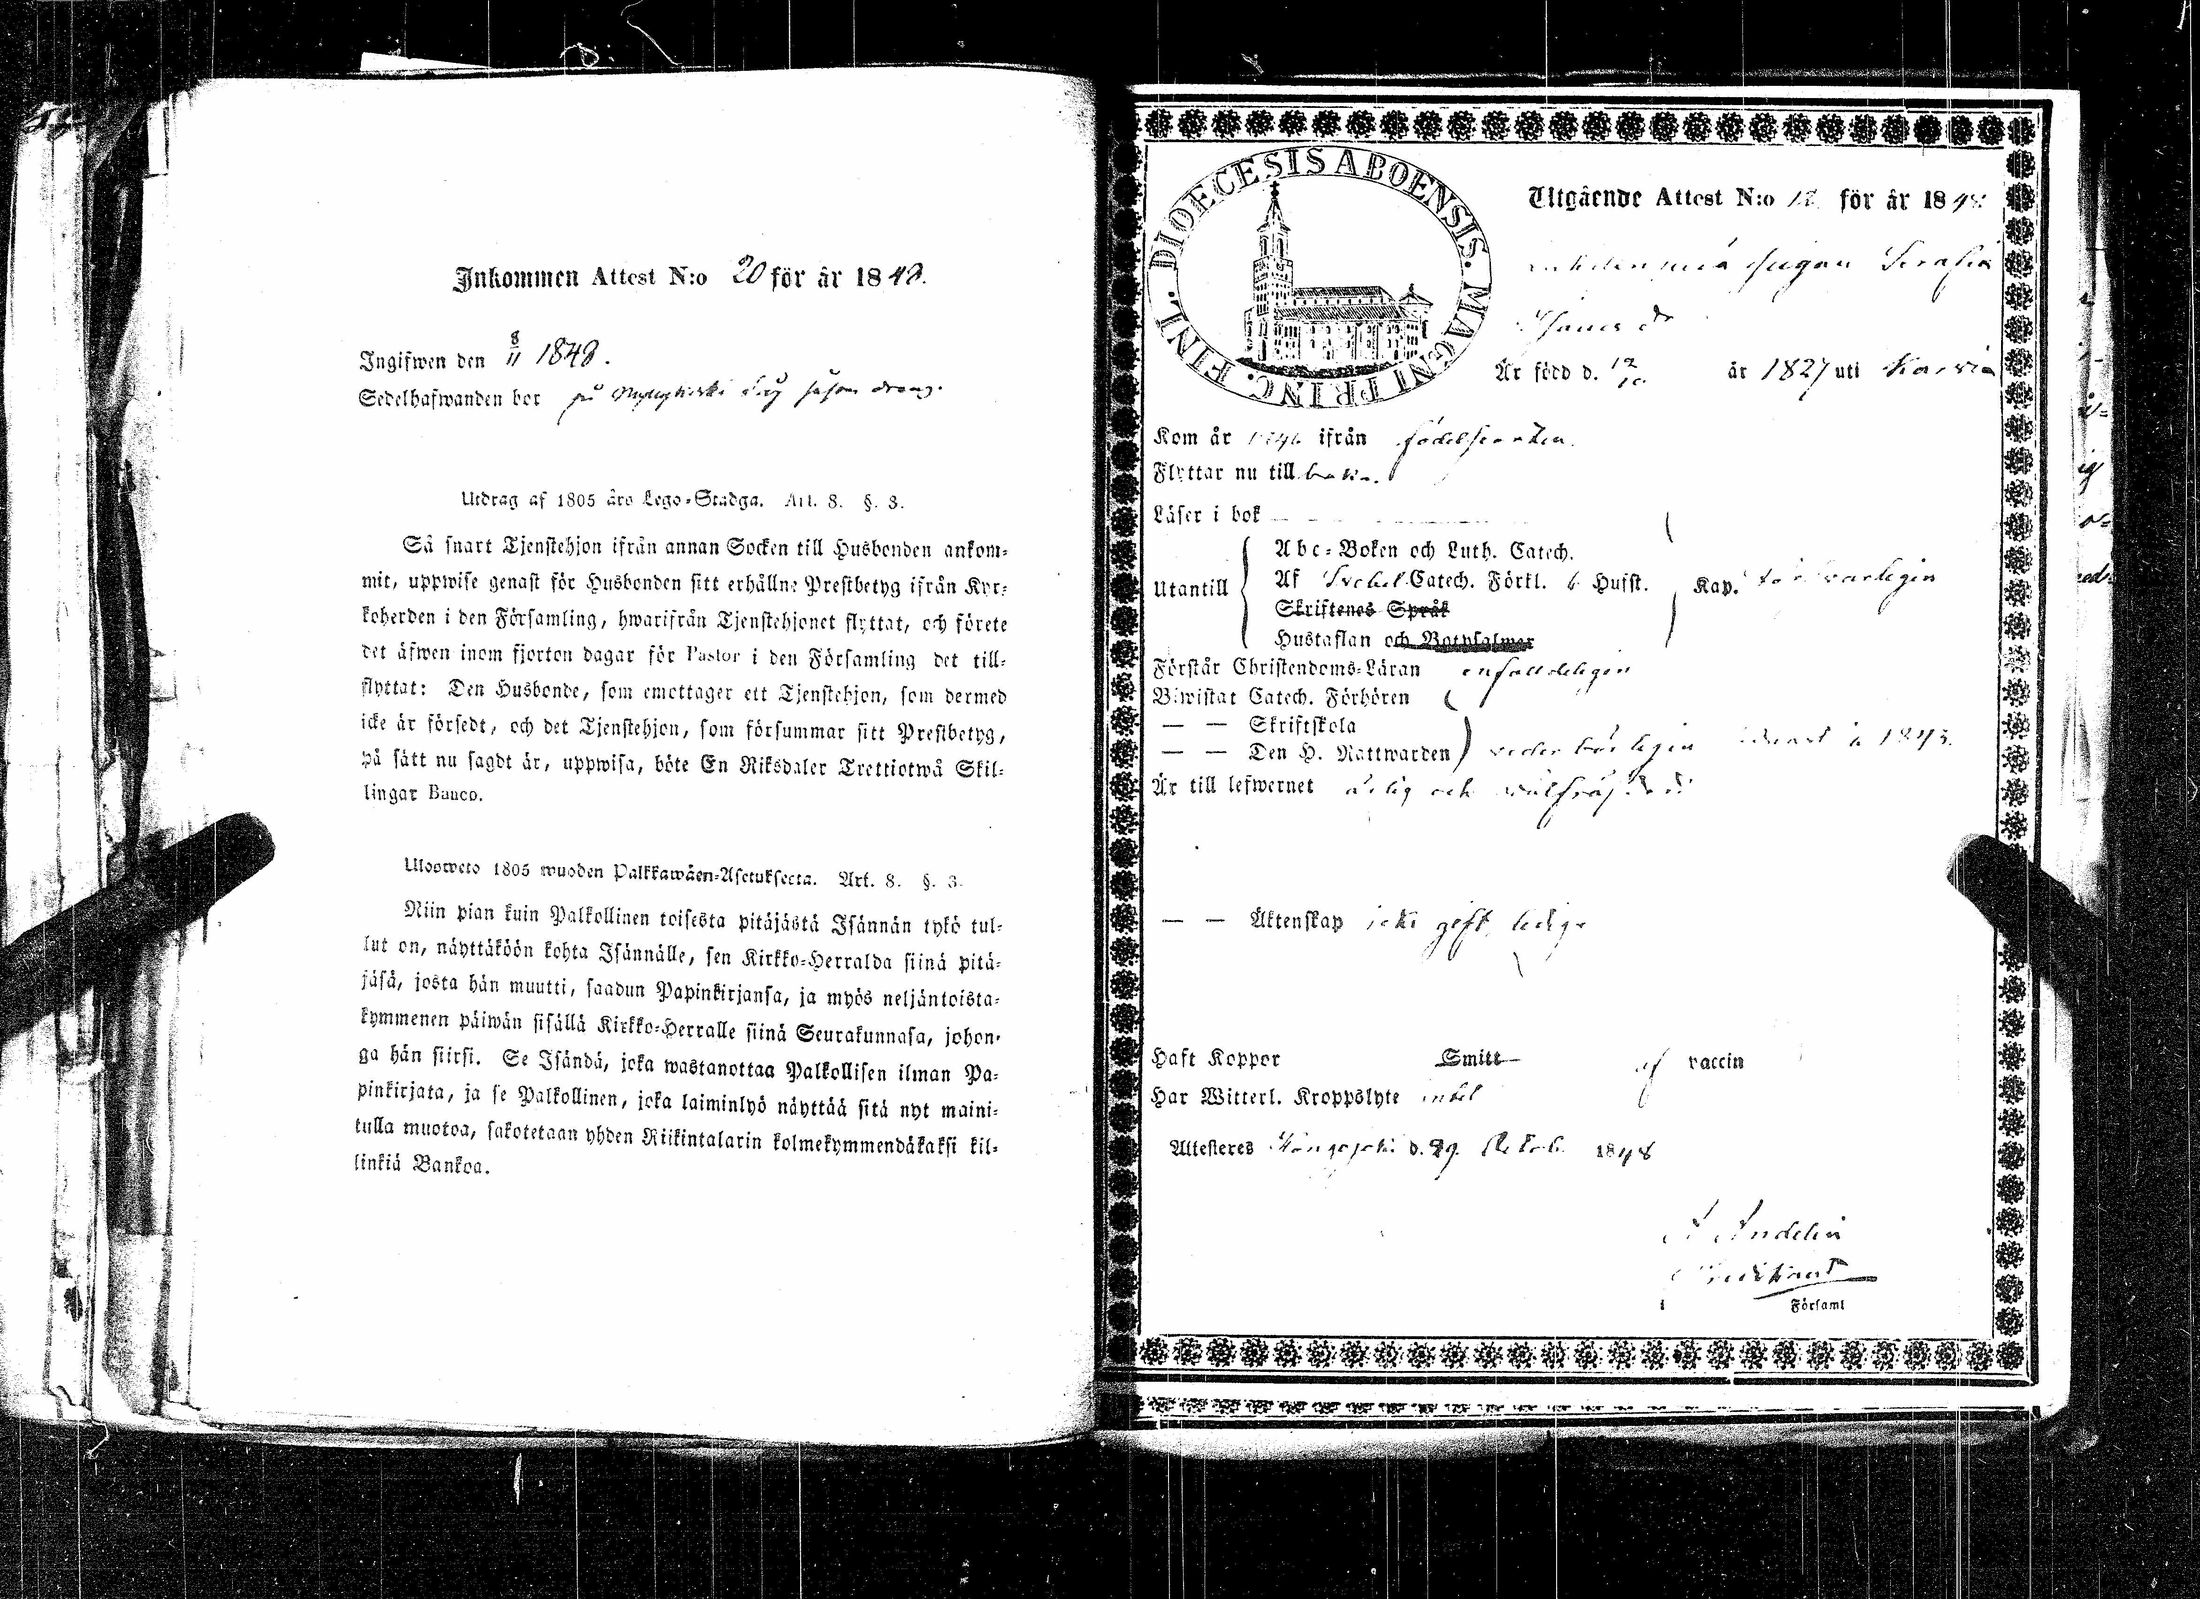 Inkommen Attest N:o 20 för år 1848.
Ingifwen den 8/11 1848.
Sedelhafwanden bor på såsom dräng.
Utdrag af 1805 års Lego-Stadga. Art. 8. §. 3.
Så snart Tjenstehjon ifrån annan Socken till Husbonden ankom-
mit, uppwise genast för Husbonden sitt erhållne Prestbetyg ifrån Kyr-
koherden i den Församling, hwarifrån Tjenstehjonet flyttat, och förete
det äfwen inom fjorton dagar för Pastor i den Församling det till-
flyttat: Den Husbonde, som emottager ett Tjenstehjon, som dermed
icke är försedt, och det Tjenstehjon, som försummar sitt Prestbetyg,
på sätt nu sagdt är, uppwisa, böte En Riksdaler Trettiotwå Skil-
lingar Banco.
Ulosweto 1805 wuoden Palkkawäen-Asetuksesta. Art. 8. §. 3.
Niin pian kuin Palkollinen toisesta pitäjästä Isännän tykö tul-
lut on, näyttäköön kohta Isännälle, sen Kirkko-Herralda siinä pitä-
jäsä, josta hän muutti, saadun Papinkirjansa, ja myös neljäntoista-
kymmenen päiwän sisällä Kirkko-Herralle siinä Seurakunnasa, johon-
ga hän siirsi. Se Isändä, joka wastanottaa Palkollisen ilman Pa-
pinkirjata, ja se Palkollinen, joka laiminlyö näyttää sitä nyt maini-
tulla muotoa, sakotetaan yhden Riikintalarin kolmekymmendäkaksi kil-
linkiä Bankoa.
DIOECESIS ABOENSIS. MAGNI PRINC. FINL.
Utgående Attest N:o 12 för år 1848
pigan Serafia
Är född d. 12/10 år 1827 uti Karvia
Kom år 1846 ifrån födelseorten.
Flyttar nu tillbaka.
Läser i bok
Utantill
Abc-Boken och Luth. Catech.
Af Svebel. Catech. Förkl. 6 Hufst. Kap. försvarligen
Skriftenes Språk
Hustaflan och Botpsalmer
Förstår Christendoms-Läran enfaldeligen
Biwistat Catech. Förhören
— — Skriftskola
— — Den H. Nattwarden vederbörligen
Är till lefwernet ärlig och välfräjdad
— — Äktenskap icke gift, ledig
Haft Koppor Smitt af vaccin
Har Witterl. Kroppslyte intet
Attesteres Kongsjoki d. 29 Octob. 1848
Församl